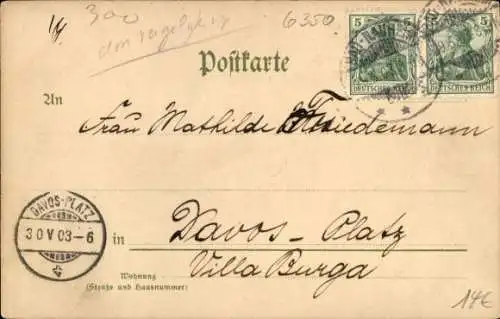 300
6350.
5 5
DEUTSCHES REICH DEUTSCHES REICH
Postkarte
An
Frau Mathilde Friedemann
DAVOS-PLATZ
30 V 03-6
in Davos-Platz
Villa Burga
Wohnung
(Straße und Hausnummer)
14€